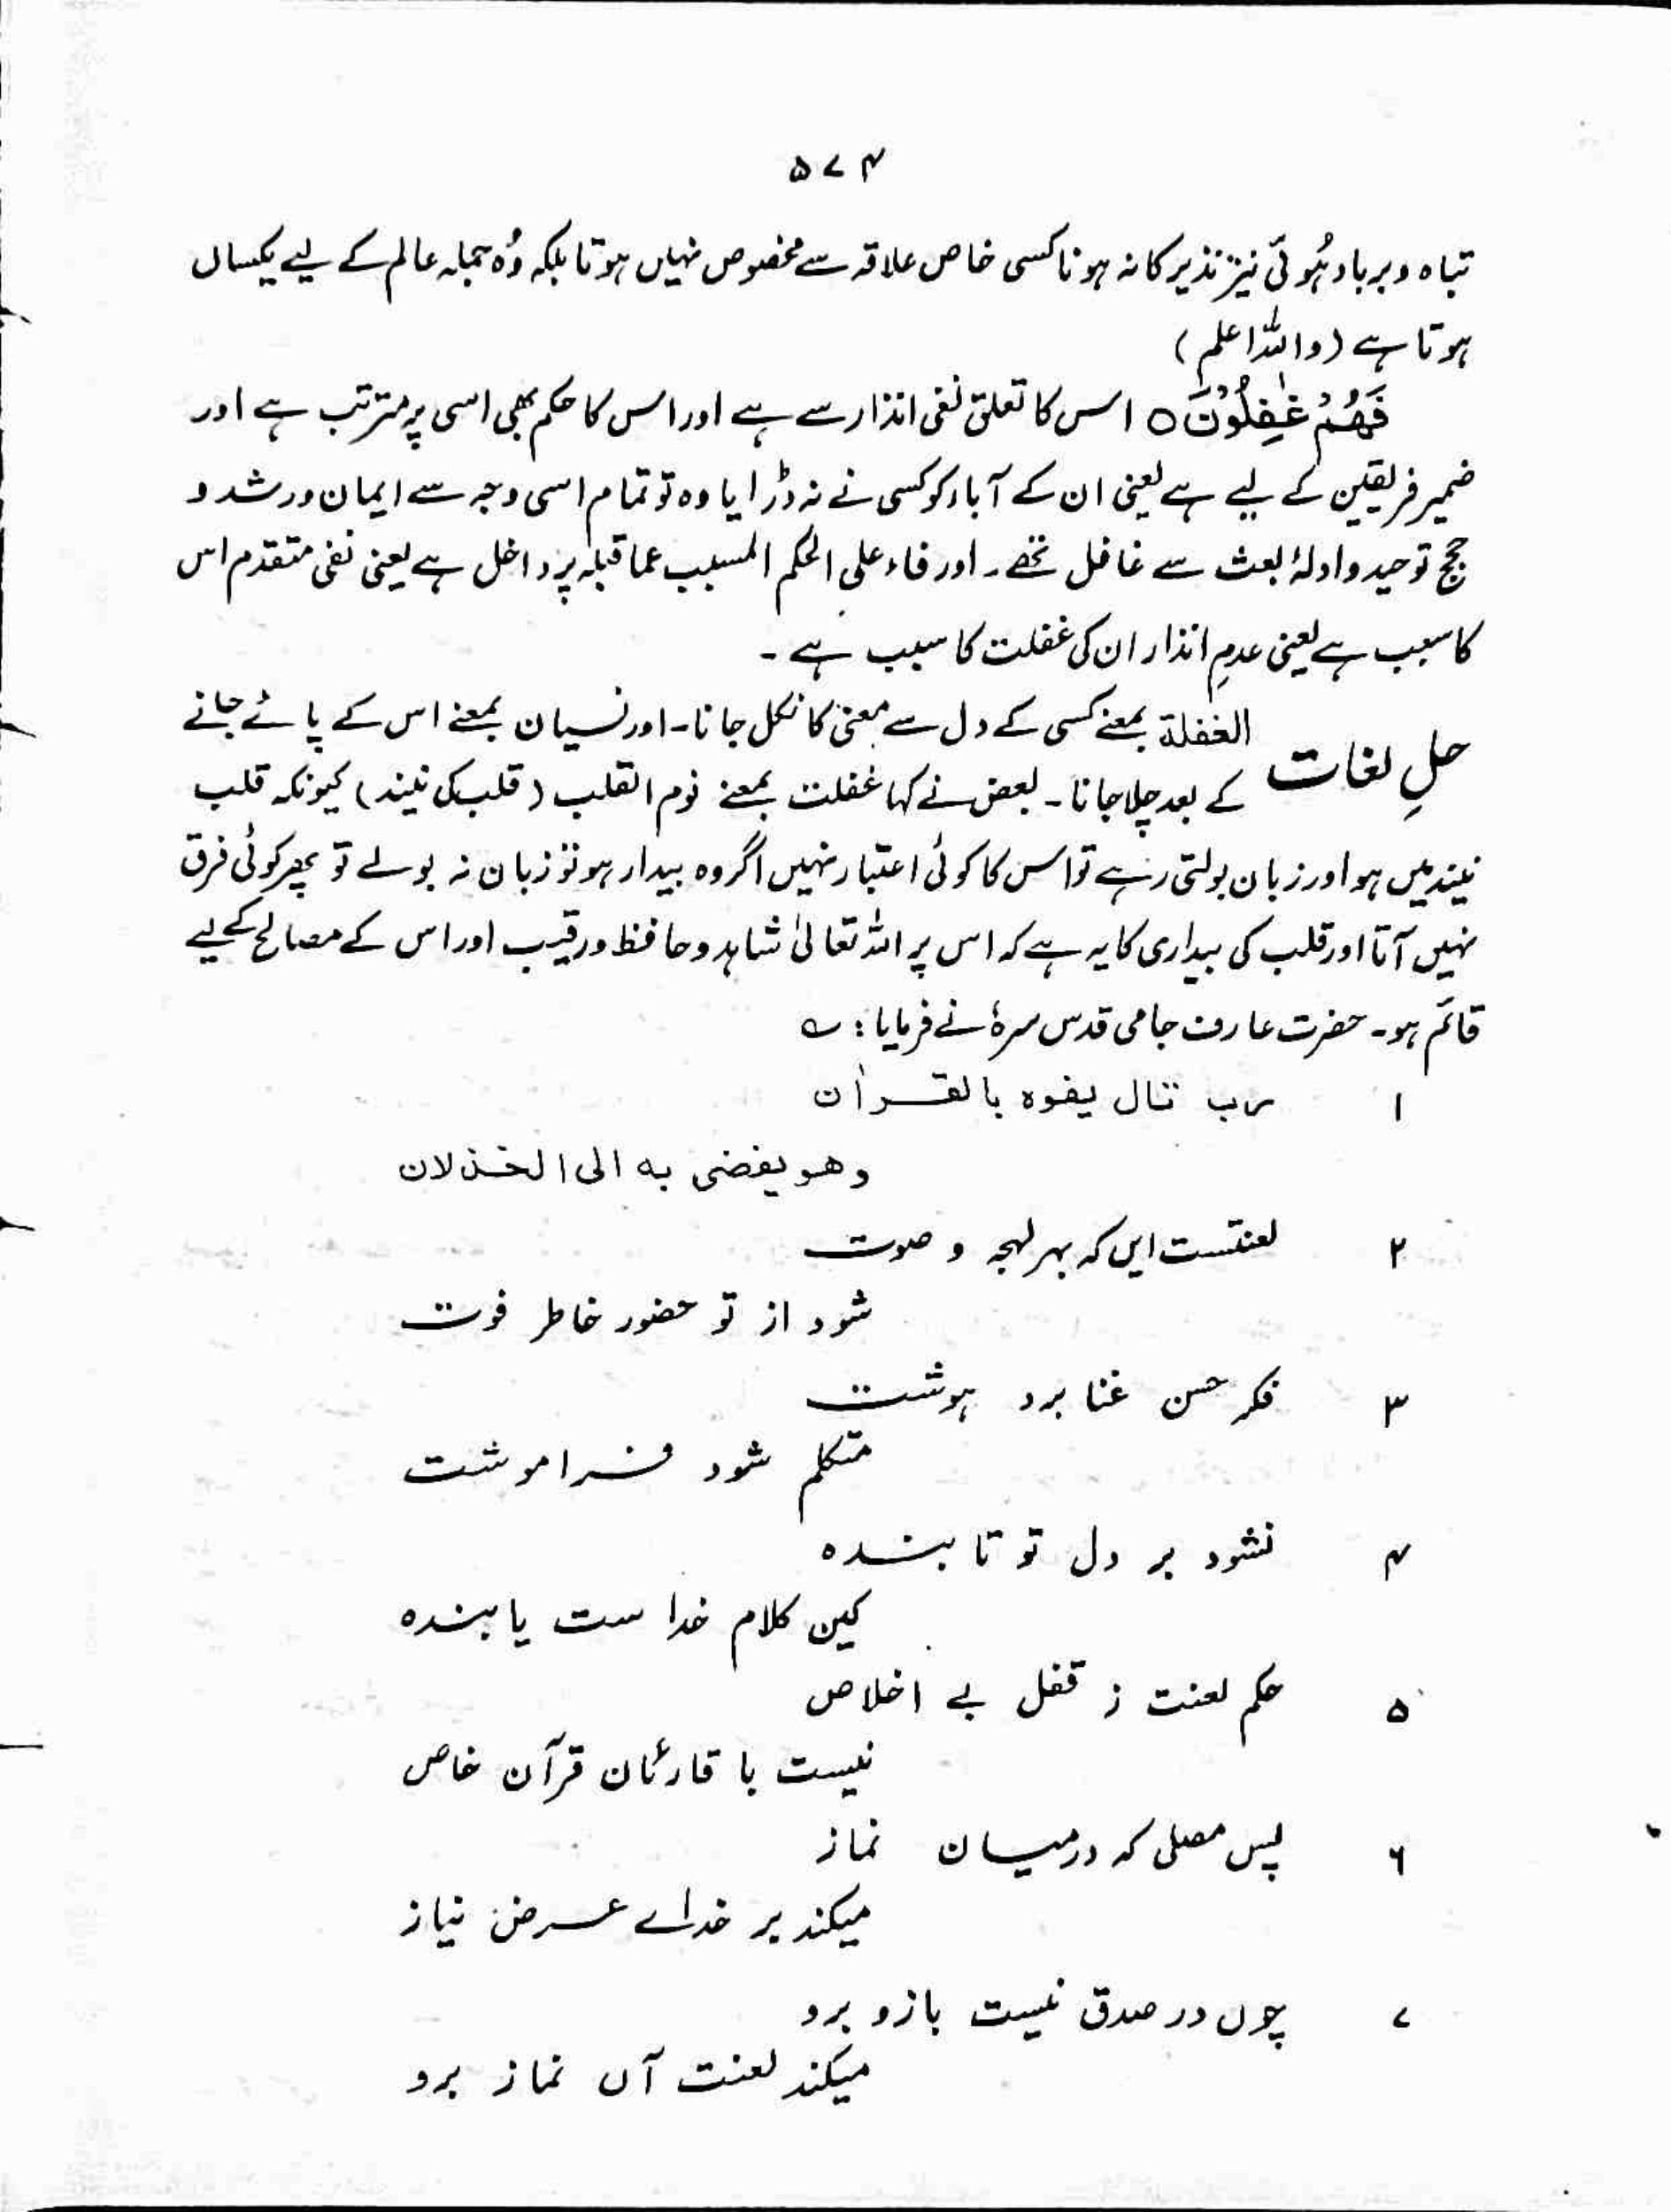 ۵۷۴
تباہ و برباد ہُوئی نیز نذیر کا نہ ہونا کسی خاص علاقہ سے مخصوص نہیں ہوتا بلکہ وُہ جملہ عالم کے لیے یکساں
ہوتا ہے (واللہ اعلم)
فَهُمْ غٰفِلُوْنَ ○ اس کا تعلق نفی انذار سے ہے اور اس کا حکم بھی اسی پر مترتب ہے اور
ضمیر فریقین کے لیے ہے یعنی ان کے آباء کو کسی نے نہ ڈرایا وہ تو تمام اسی وجہ سے ایمان و رشد و
حجج توحید و ادلۂ بعث سے غافل تھے۔ اور فاء علی الحکم المسبب عما قبلہ پر داخل ہے یعنی نفی متقدم اس
کا سبب ہے یعنی عدمِ انذار ان کی غفلت کا سبب ہے ۔
حلِ لغات الغفلة بمعنے کسی کے دل سے معنیٰ کا نکل جانا۔ اور نسیان بمعنے اس کے پائے جانے
کے بعد چلا جانا۔ بعض نے کہا غفلت بمعنے نوم القلب (قلب کی نیند) کیونکہ قلب
نیند میں ہو اور زبان بولتی رہے تو اس کا کوئی اعتبار نہیں اگر وہ بیدار ہو تو زبان نہ بولے تو پھر کوئی فرق
نہیں آتا اور قلب کی بیداری کا یہ ہے کہ اس پر اللہ تعالیٰ شاہد و حافظ و رقیب اور اس کے مصالح کے لیے
قائم ہو۔ حضرت عارف جامی قدس سرہٗ نے فرمایا : ؎
۱ رب تال يفوه بالقراٰن
وهو يفضى به الى الخذلان
۲ لعنتست ایں کہ بہر لہجہ و صوت
شود از تو حضور خاطر فوت
۳ فکر حسن غنا برد ہوشت
متکلم شود فراموشت
۴ نشود بر دل تو تابندہ
کین کلام خدا ست یا بندہ
۵ حکم لعنت ز قفل بے اخلاص
نیست با قارئان قرآن خاص
۶ پس مصلی کہ درمیان نماز
میکند بر خدائے عرض نیاز
۷ چوں در صدق نیست باز و برو
میکند لعنت آں نماز برو